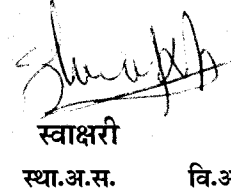 स्वाक्षरी
स्था.अ.स. वि.अ